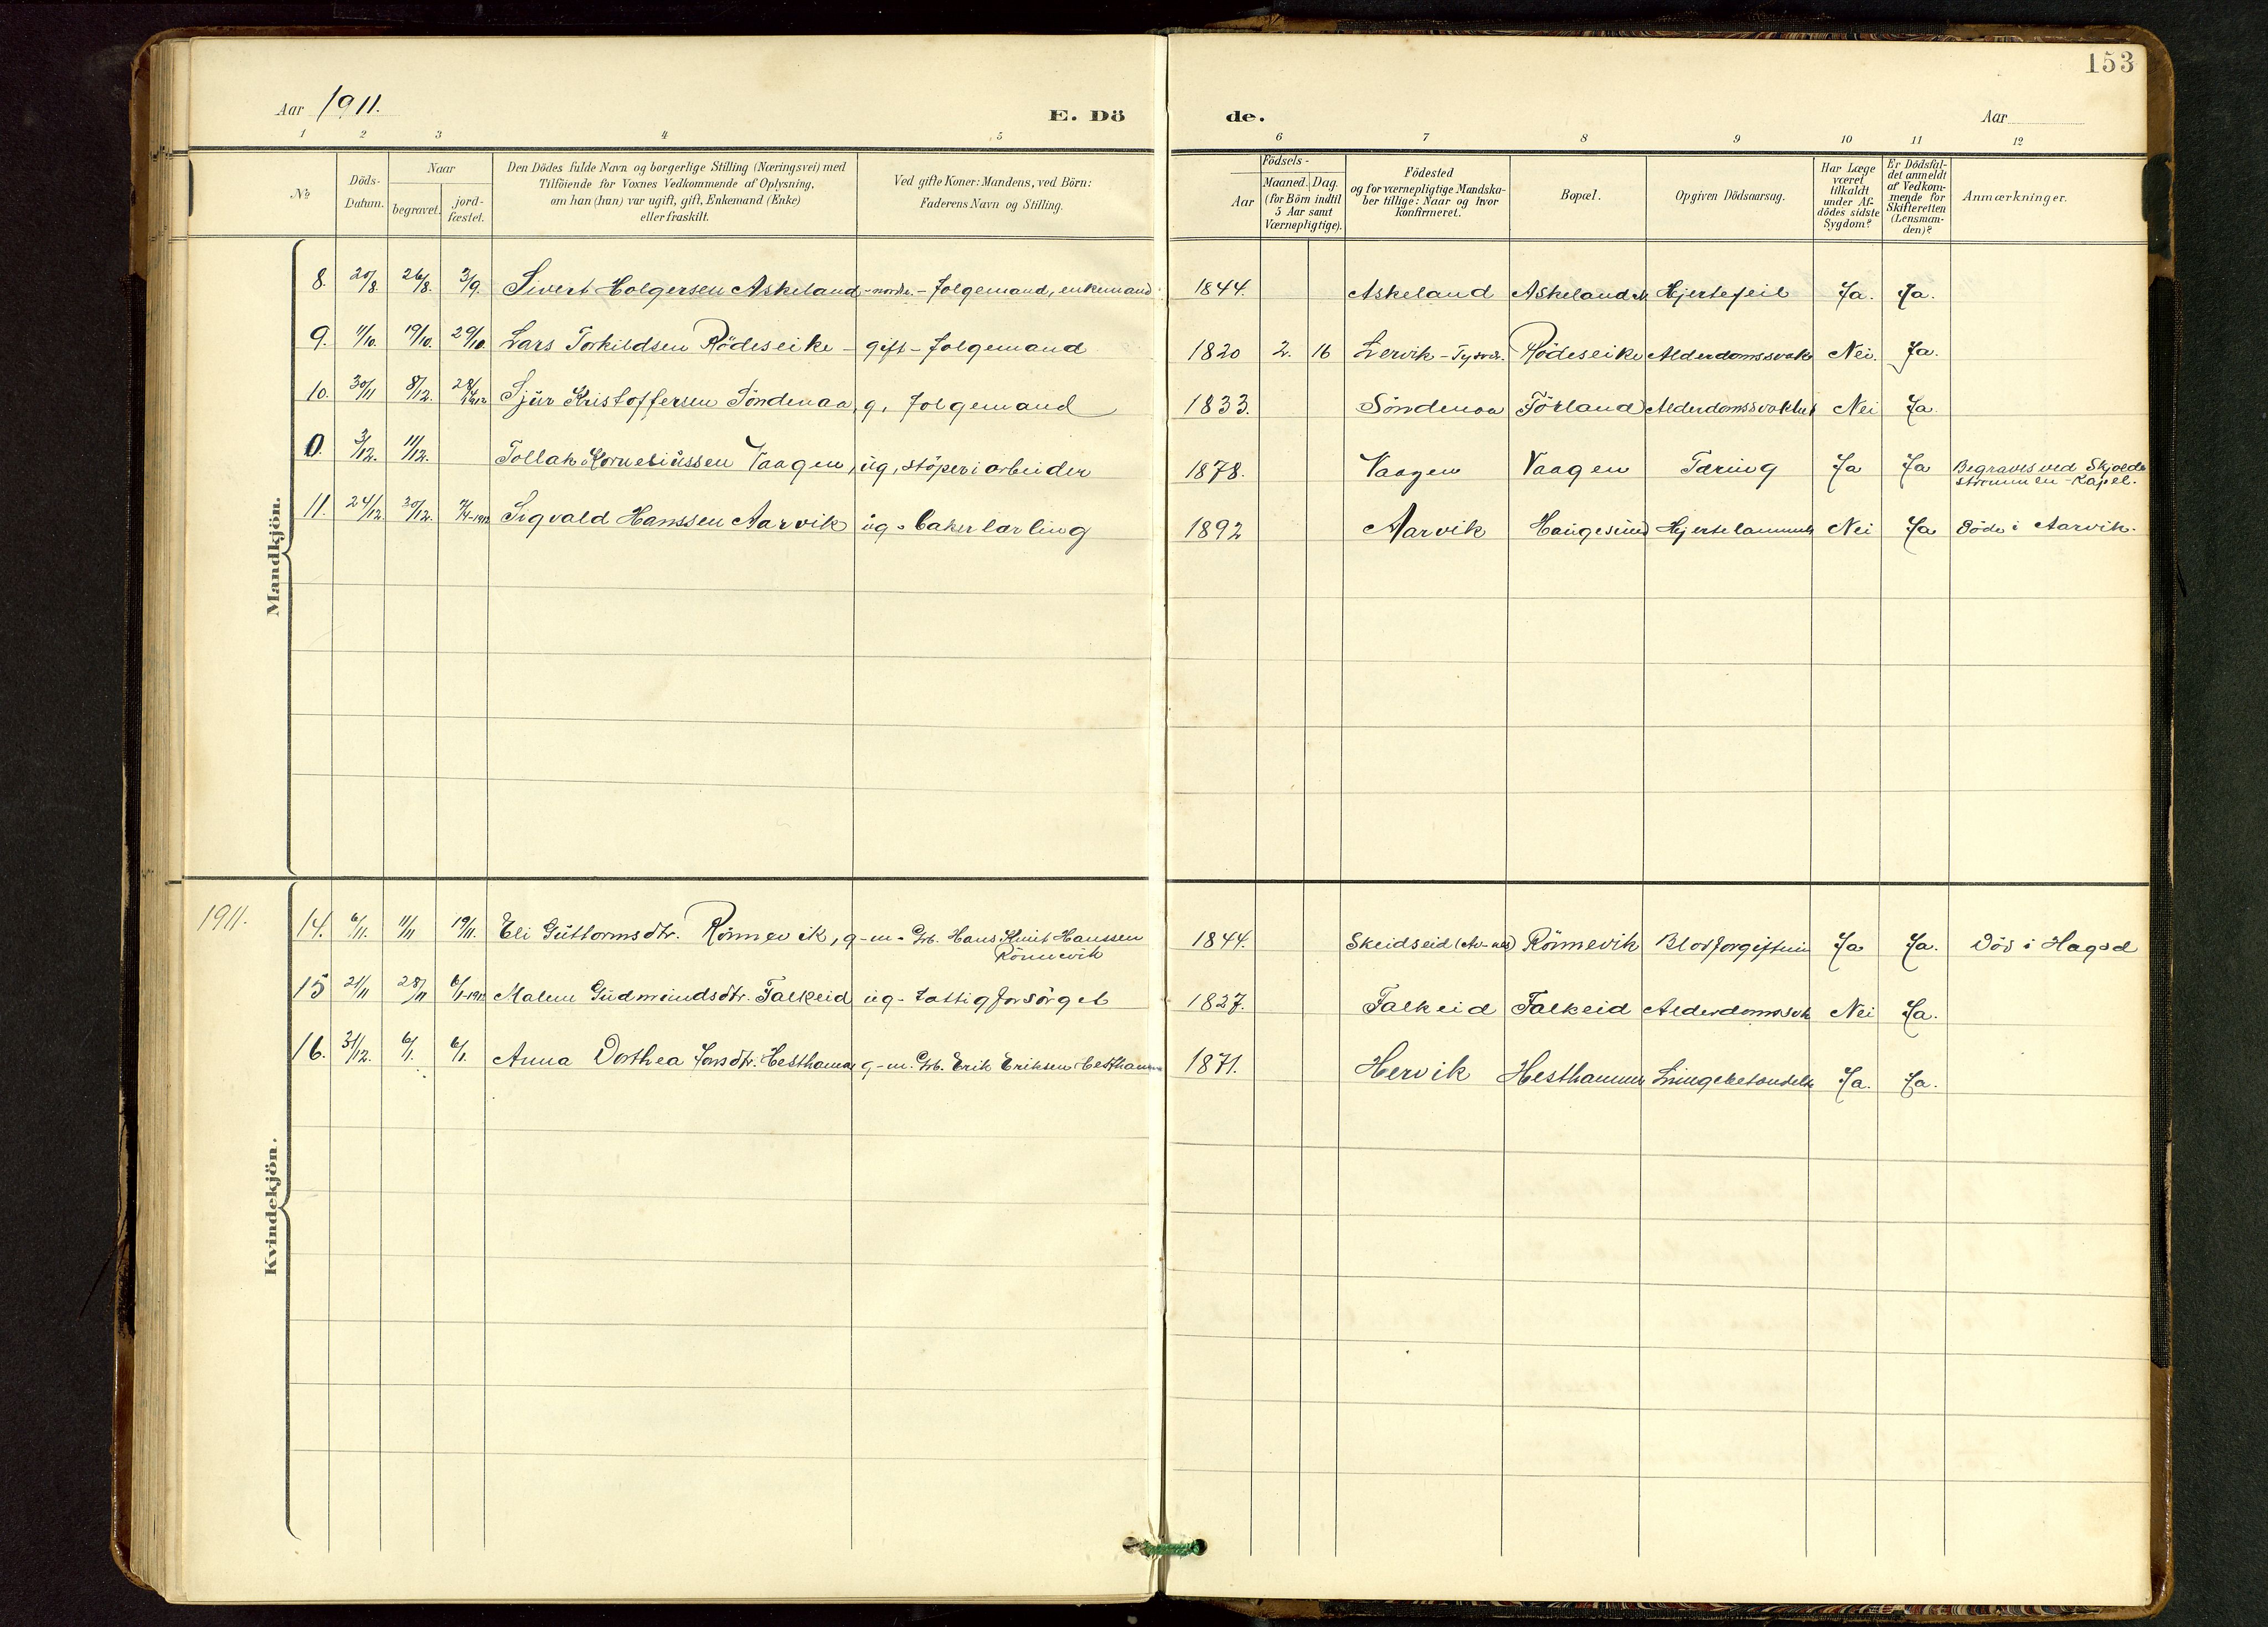 153
Aar 1911.
E. Dö
de.
Aar
1 2 3 4 5 6 7 8 9 10 11 12
No
Döds-
Datum.
Naar
begravet.
jord-
fæstet.
Den Dödes fulde Navn og borgerlige Stilling (Næringsvei) med
Tilföiende for Voxnes Vedkommende af Oplysning,
om han (hun) var ugift, gift, Enkemand (Enke)
eller fraskilt.
Ved gifte Koner: Mandens, ved Börn:
Faderens Navn og Stilling.
Födsels-
Aar
Maaned. Dag.
(for Börn indtil
5 Aar samt
Værnepligtige).
Födested
og for værnepligtige Mandska-
ber tillige: Naar og hvor
Konfirmeret.
Bopæl.
Opgiven Dödsaarsag.
Har Læge
været
tilkaldt
under Af-
dödes sidste
Sygdom?
Er Dödsfal-
det anmeldt
af Vedkom-
mende for
Skifteretten
(Lensman-
den)?
Anmærkninger.
Mandkjön.
8. 20/8. 26/8. 3/9. Sivert Holgersen Askeland -nordre.- Folgemand, enkemand 1844. Askeland Askeland Hjertefeil Ja. Ja.
9. 11/10. 19/10. 29/10. Lars Torkildsen Rödeseike - gift - Folgemand 1820 2. 16 Lervik - Tysvær. Rödeseike Alderdomssvak Nei. Ja.
10. 30/11 8/12. Sjur Kristoffersen Söndenaa, g, Folgemand 1833. Söndenaa Förland Alderdomssvakhet Nei Ja.
0. 3/12. 11/12. Tollak Korneliussen Vaagen, ug, stöperiarbeider 1878. Vaagen Vaagen Tæring Ja Ja Begraves ved Skjolde-
strømmen - Kapel.
11. 24/12. 30/12. Sigvald Hanssen Aarvik ug - bakerlærling 1892 Aarvik Haugesund Hjertelammelse Nei Ja Döde i Aarvik.
Kvindekjön.
1911.
14. 6/11. 11/11 19/11. Eli Guttormsdtr. Rönnevik, g - m - Grb. Hans Knut Hanssen
Rönnevik 1844. Skeidseid Rönnevik Blodforgiftnin Ja Ja. Död i Hagsd
15 21/11 28/11 6/1-1912 Malene Gudmundsdtr. Falkeid ug - fattigforsörget 1827. Falkeid Falkeid Alderdomssvk Nei Ja.
16. 31/12. 6/1. 6/1. Anna Dorthea Jonsdtr. Hesthamar g - m. Grb. Erik Eriksen Hesthammer 1871. Hervik Hesthammer Lungebetændelse Ja. Ja.